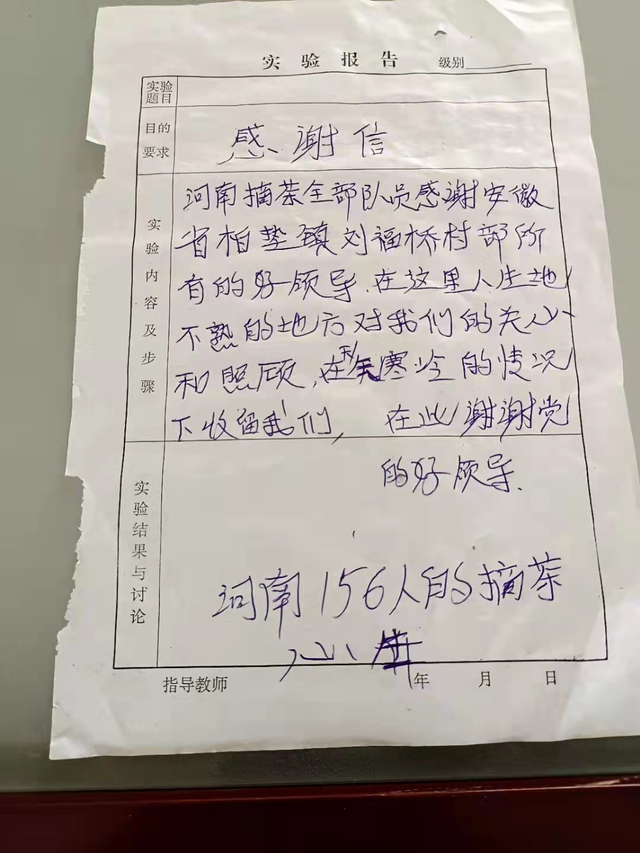 实验报告 级别
实验
题目
目的
要求
感谢信
实验内容及步骤
河南摘茶全部队员感谢安徽
省柏垫镇刘福桥村部所
有的好领导.在这里人生地
不熟的地方对我们的关心
和照顾,在天寒冷的情况
下收留我们, 在此谢谢党
的好领导.
实验结果与讨论
河南156人的摘茶
心
指导教师 年 月 日